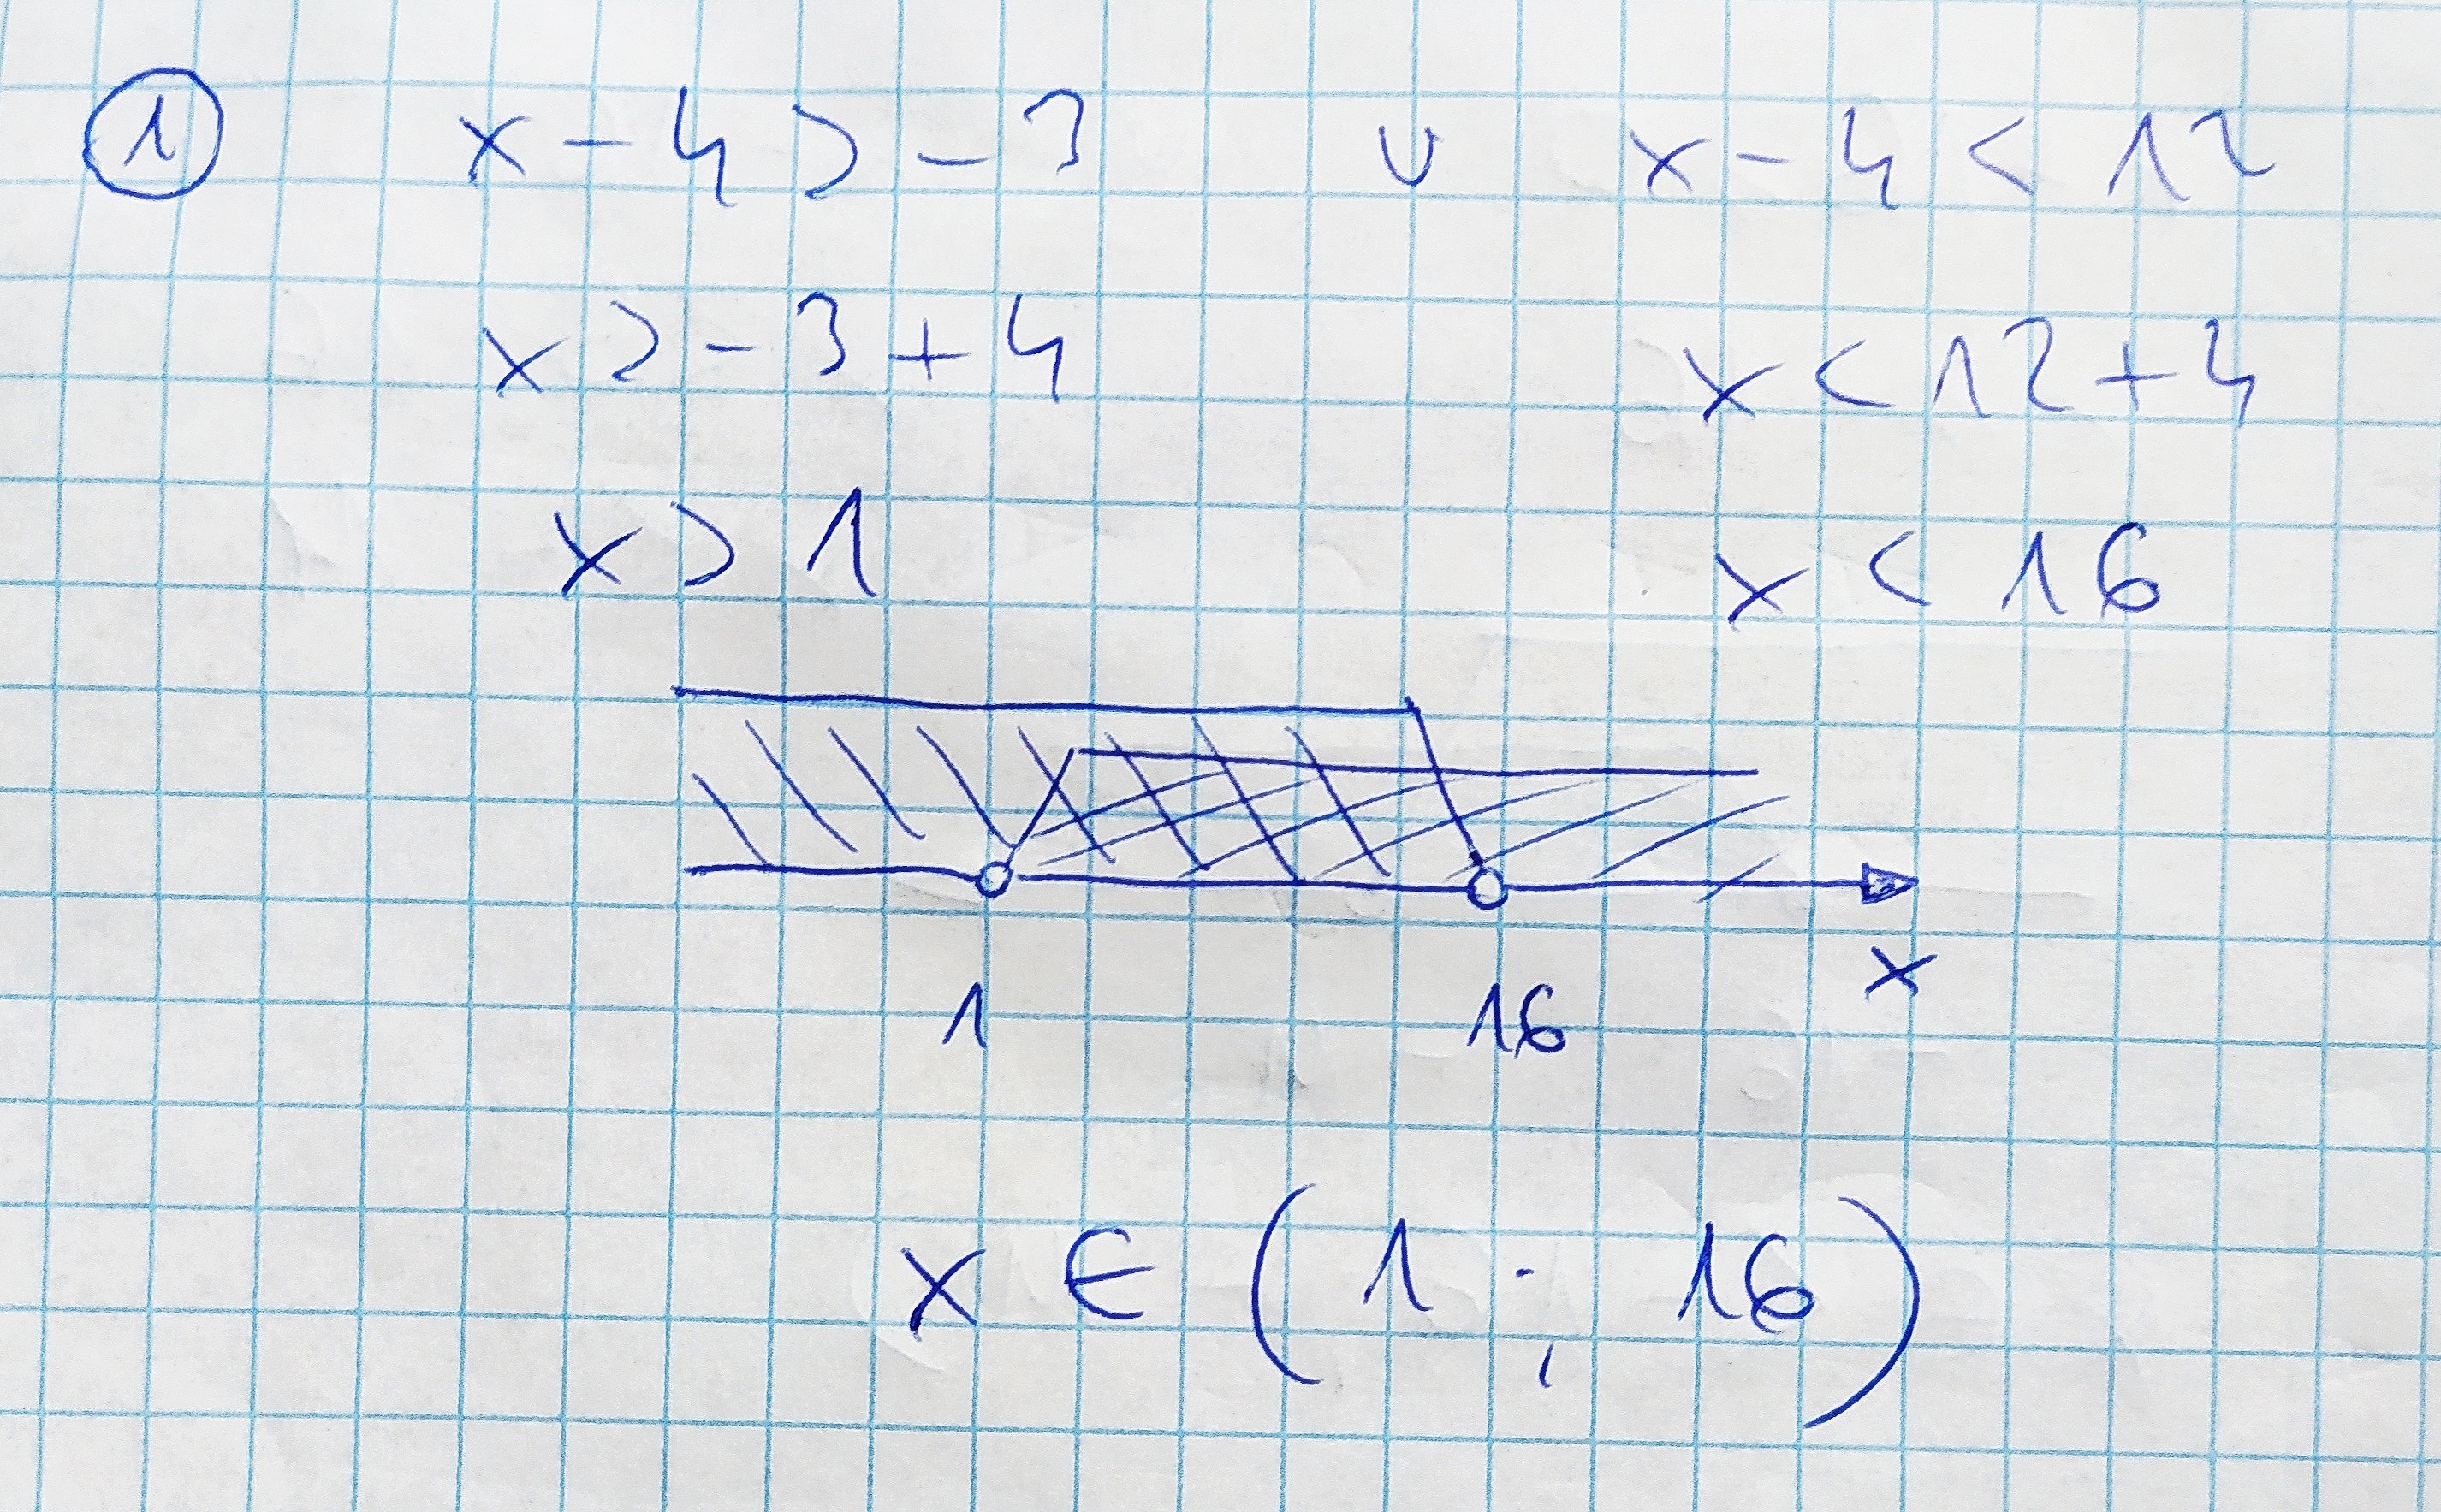 ① x - 4 > - 3 ∨ x - 4 < 12
x > - 3 + 4 x < 12 + 4
x > 1 x < 16
x
1 16
x ∈ (1 ; 16)